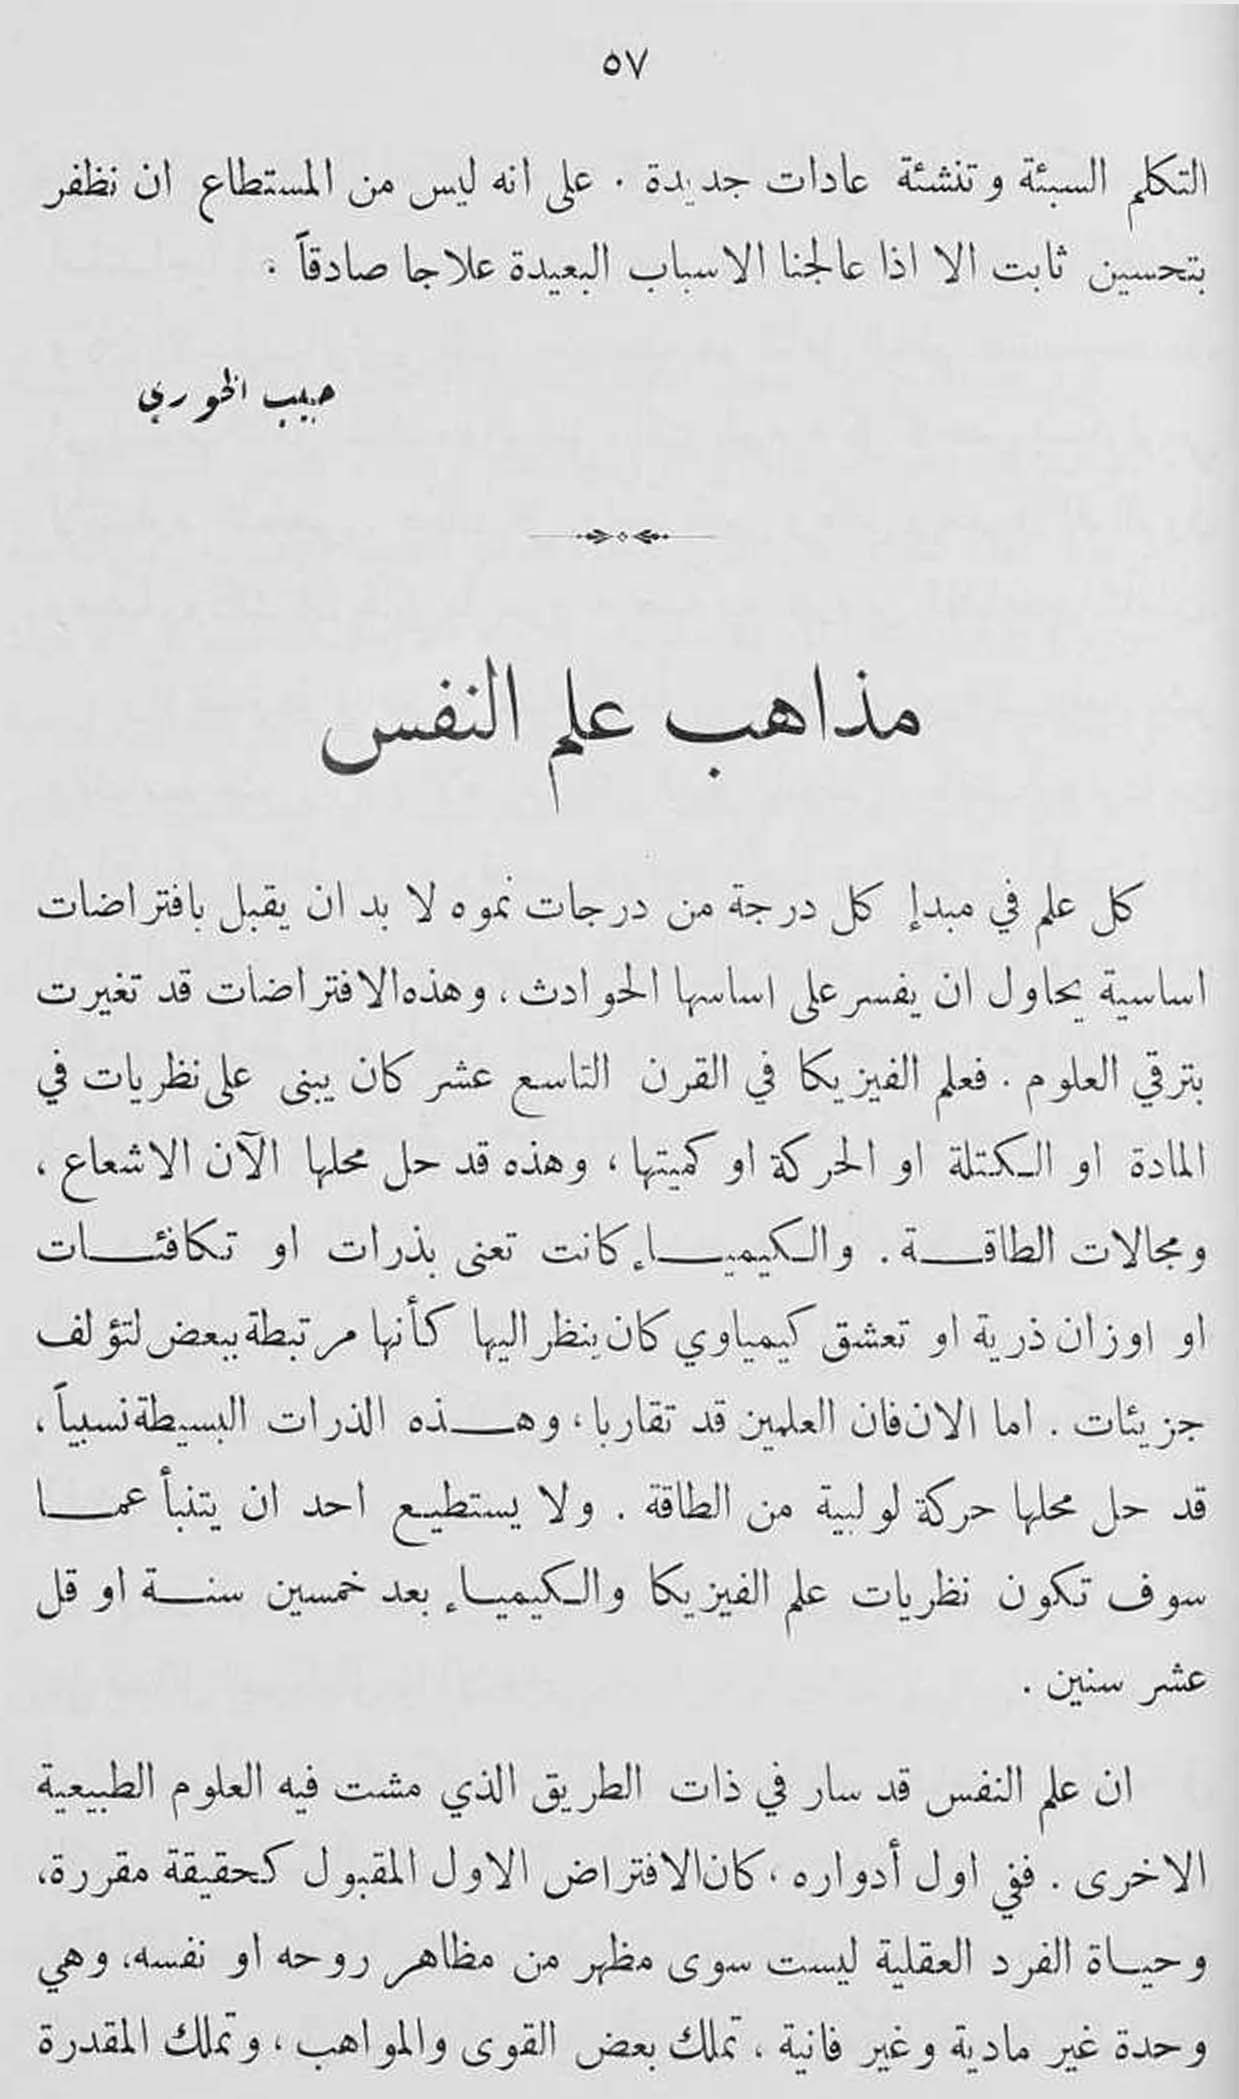 ٥٧
التكلم السيئة وتنشئة عادات جديدة . على انه ليس من المستطاع ان نظفر
بتحسين ثابت الا اذا عالجنا الاسباب البعيدة علاجا صادقاً .
حبيب الخوري
مذاهب علم النفس
كل علم في مبدإ كل درجة من درجات نموه لا بد ان يقبل بافتراضات
اساسية يحاول ان يفسر على اساسها الحوادث ، وهذه الافتراضات قد تغيرت
بترقي العلوم . فعلم الفيزيكا في القرن التاسع عشر كان يبنى على نظريات في
المادة او الكتلة او الحركة او كميتها ، وهذه قد حل محلها الآن الاشعاع ،
ومجالات الطاقة . والكيمياء كانت تعنى بذرات او تكافئات
او اوزان ذرية او تعشق كيمياوي كان ينظر اليها كأنها مرتبطة ببعض لتؤلف
جزيئات . اما الان فان العلمين قد تقاربا ، وهذه الذرات البسيطة نسبياً ،
قد حل محلها حركة لولبية من الطاقة . ولا يستطيع احد ان يتنبأ عما
سوف تكون نظريات علم الفيزيكا والكيمياء بعد خمسين سنة او قل
عشر سنين .
ان علم النفس قد سار في ذات الطريق الذي مشت فيه العلوم الطبيعية
الاخرى . ففي اول أدواره ، كان الافتراض الاول المقبول كحقيقة مقررة ،
وحياة الفرد العقلية ليست سوى مظهر من مظاهر روحه او نفسه ، وهي
وحدة غير مادية وغير فانية ، تملك بعض القوى والمواهب ، وتملك المقدرة